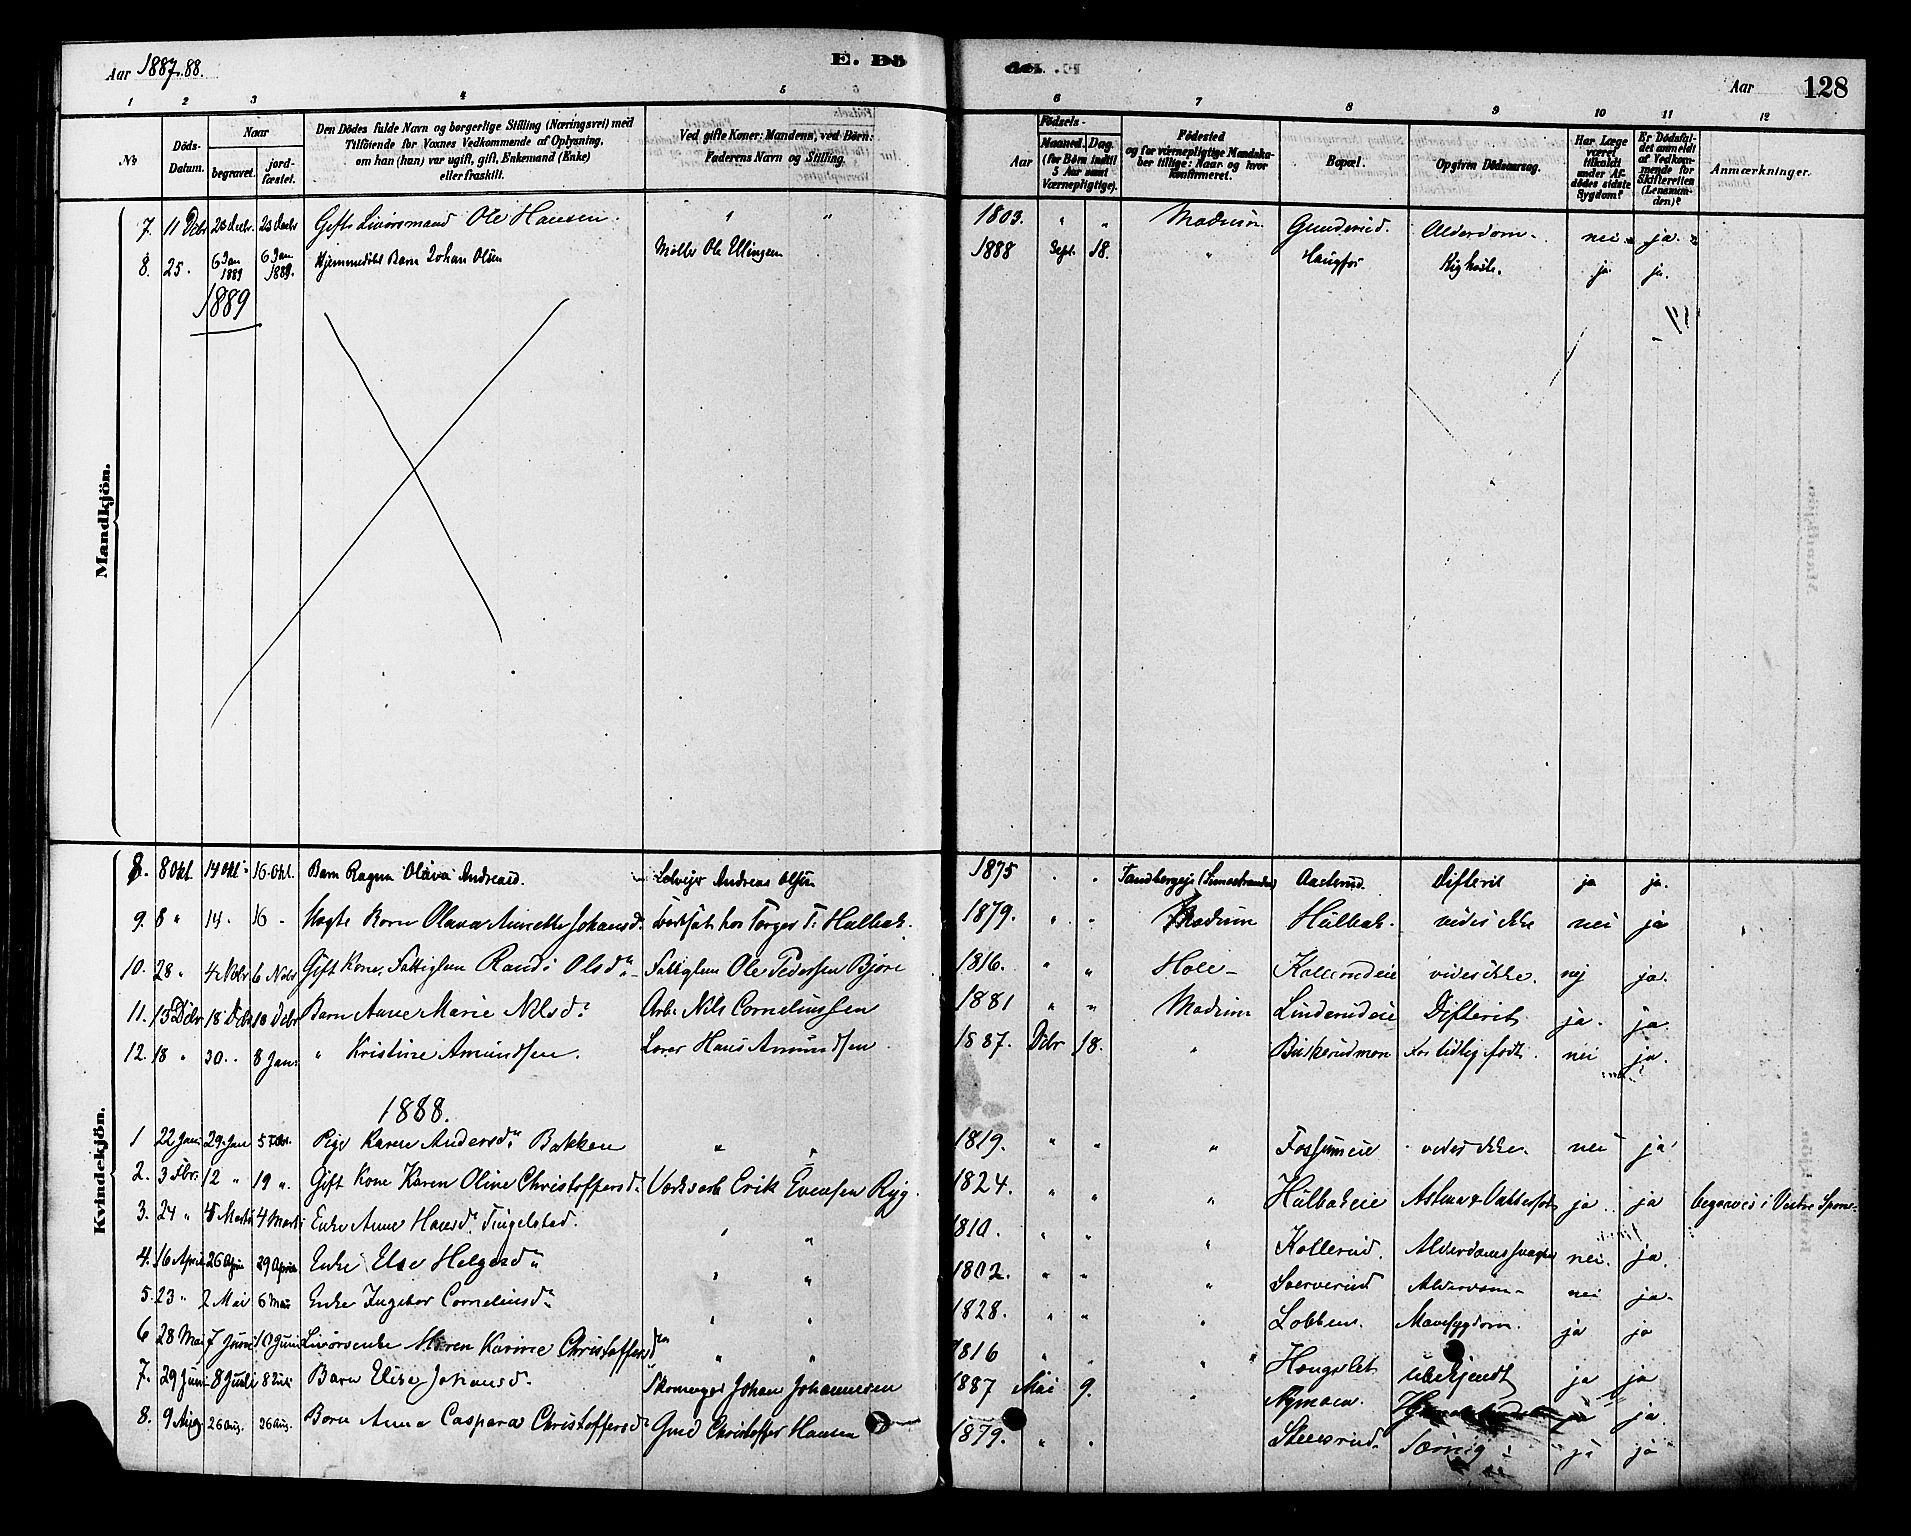 Aar 1887.88. E. Dö
de. Aar 128
1 2 3 4 5 6 7 8 9 10 11 12
No
Döds-Datum.
Naar
begravet.
jordfæstet.
Den Dödes fulde Navn og borgerlige Stilling (Næringsvei) med
Tilföiende for Voxnes Vedkommende af Oplysning,
om han (hun) var ugift, gift, Enkemand (Enke)
eller fraskilt.
Ved gifte Koner: Mandens, ved Börn:
Faderens Navn og Stilling.
Födsels-
Aar
Maaned. Dag.
(for Börn indtil
5 Aar samt
Værnepligtige).
Födested
og for værnepligtige Mandska-
ber tillige: Naar og hvor
konfirmeret.
Bopæl.
Opgiven Dödsaarsag.
Har Læge
været
tilkaldt
under Af-
dödes sidste
Sygdom?
Er Dödsfal-
det anmeldt
af Vedkom-
mende for
Skifteretten
(Lensman-
den)?
Anmærkninger.
Mandkjön.
7. 11 Decbr 23 Decbr. 23 Decbr Gift Livörsmand Ole Hansen. " " 1803. " " Modum Gunderud. Alderdom. nei ja.
8. 25. 6 Jan 1889 6 Jan 1889. Hjemmedöbt Barn Johan Olsen Möller Ole Ellingsen 1888 Sept. 18. " Haugfos Kighoste. ja ja.
1889
Kvindekjön.
8. 8 Okt. 14 Okt. 16. Okt. Barn Ragna Olava Andreasd. Selveier Andreas Olsen 1875 " " Aaserud. Difterit ja ja.
9. 8 " 14. 16 - Barn Olava Annette Johansd. Torger T. Hulbak. 1879. " " Modum Hulbak. vides ikke nei ja
10. 28 " 4 Nobr 6 Nobr Gift Kone, Fattiglem Randi Olsd. Fattiglem Ole Pedersen Björe 1816. " " Hole - Kollerudeie vides ikke. nej ja.
11. 15 Decbr 18 Debr 18 Debr Barn Anne Marie Nilsd. Arb. Nils Corneliussen 1881 " " Modum Linderudeie Difterit ja. ja.
12. 18 " 30. 8 Jan. " Kristine Amundsen. Hans Amundsen 1887. Debr 18. " Buskerudmoen For tidlig födt. nei ja.
1888.
1 22 Jan. 29. Jan 5 Febr. Pige Karen Andersd. Bakken " " 1819. " " " Fossumeie vides ikke. nei ja
2. 3 Fbr. 12 " 19 ". Gift Kone Karen Oline Christoffersd. Erik Evensen Ryg. 1824. " " " Hulbakeie Astma & Vattersot ja ja begraves i Vestre Spone
3. 24 " 4 Marts Enke Anne Hansd. Tingelstad. " " 1810. " " " Kollerud. Alderdomssvaghed nei. ja.
4. 16 April 26 April 29 April Enke Else Helgesd. " " 1802. " " " Alderdom nei ja.
5. 23 " 2 Mai 6 Mai Enke Ingebor Corneliusd. " " 1828. " " " Lobben. Mavesygdom. ja ja
6 28 Mai 7 Juni 10 Juni Livörsenke Maren Karine Christoffersd. " " 1816 " " " " ubekjendt ja ja
7. 29 Juni 8 Juli 8 Juli Barn Elise Johansd. Skomager Johan Johannesen 1887 Mai 9. " Nymoen ja ja.
8. 9 Aug 26 Aug. 26 Aug. Barn Anna Caspara Christoffersd. Gmd Christoffer Hansen 1879. " " ja ja